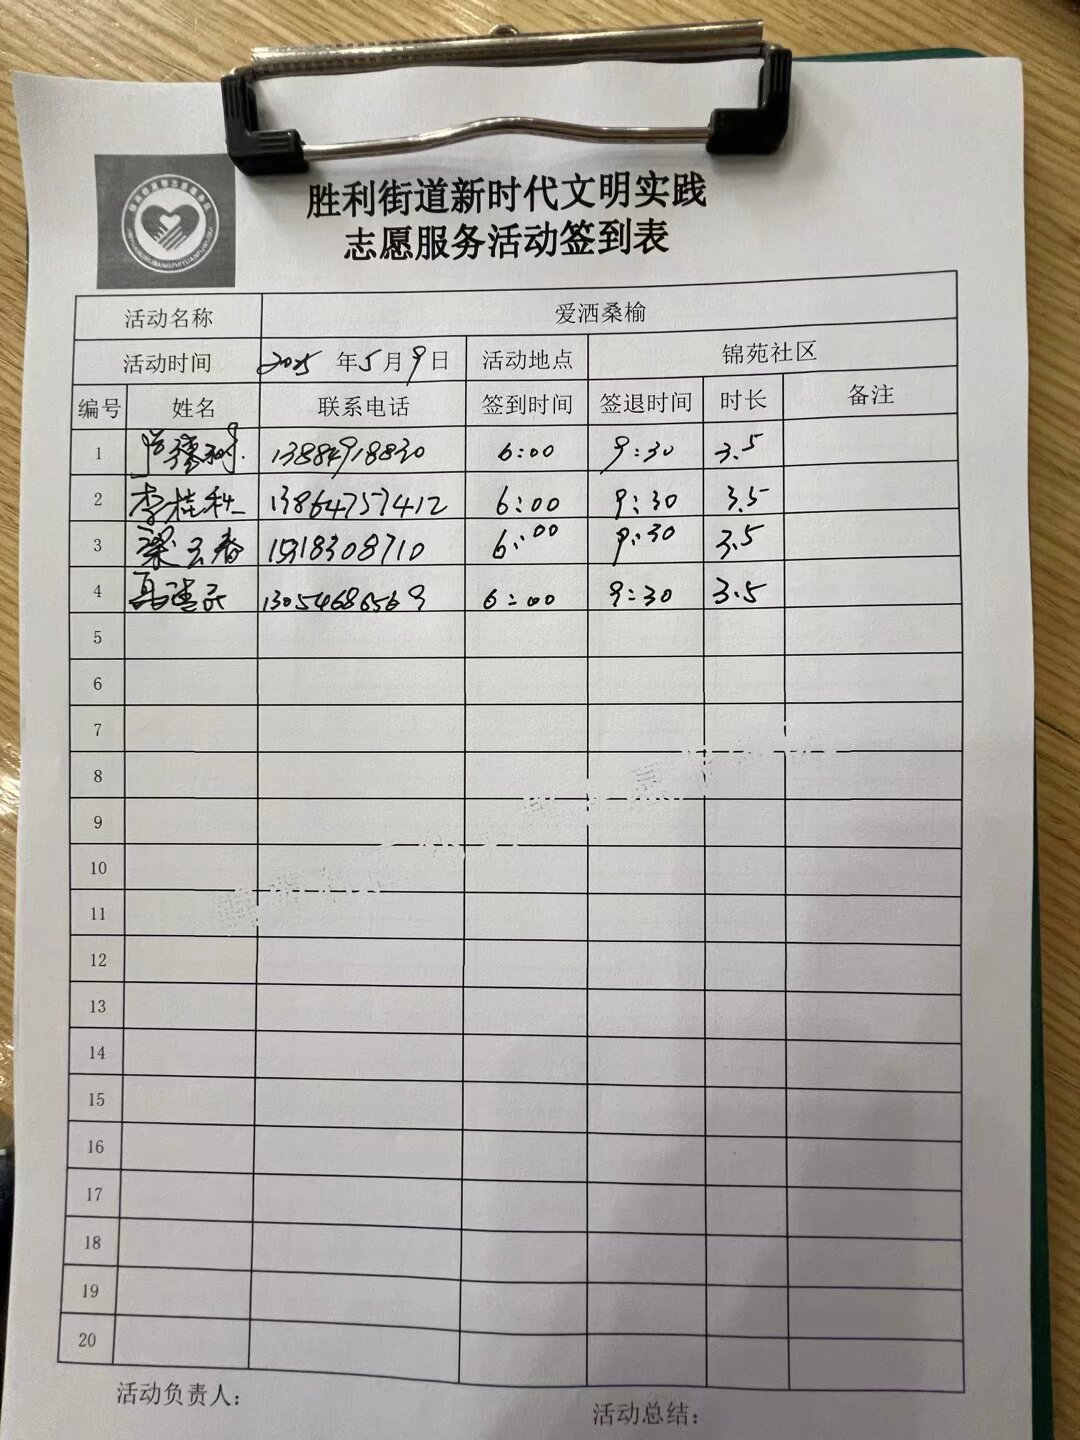 胜利街道新时代文明实践
志愿服务活动签到表
活动名称 爱洒桑榆
活动时间 2025年5月9日 活动地点 锦苑社区
编号 姓名 联系电话 签到时间 签退时间 时长 备注
1 13884918830 6:00 9:30 3.5
2 李桂秋 13864757412 6:00 9:30 3.5
3 梁云春 15318308710 6:00 9:30 3.5
4 13054686569 6:00 9:30 3.5
5
6
7
8
9
10
11
12
13
14
15
16
17
18
19
20
活动负责人:
活动总结: